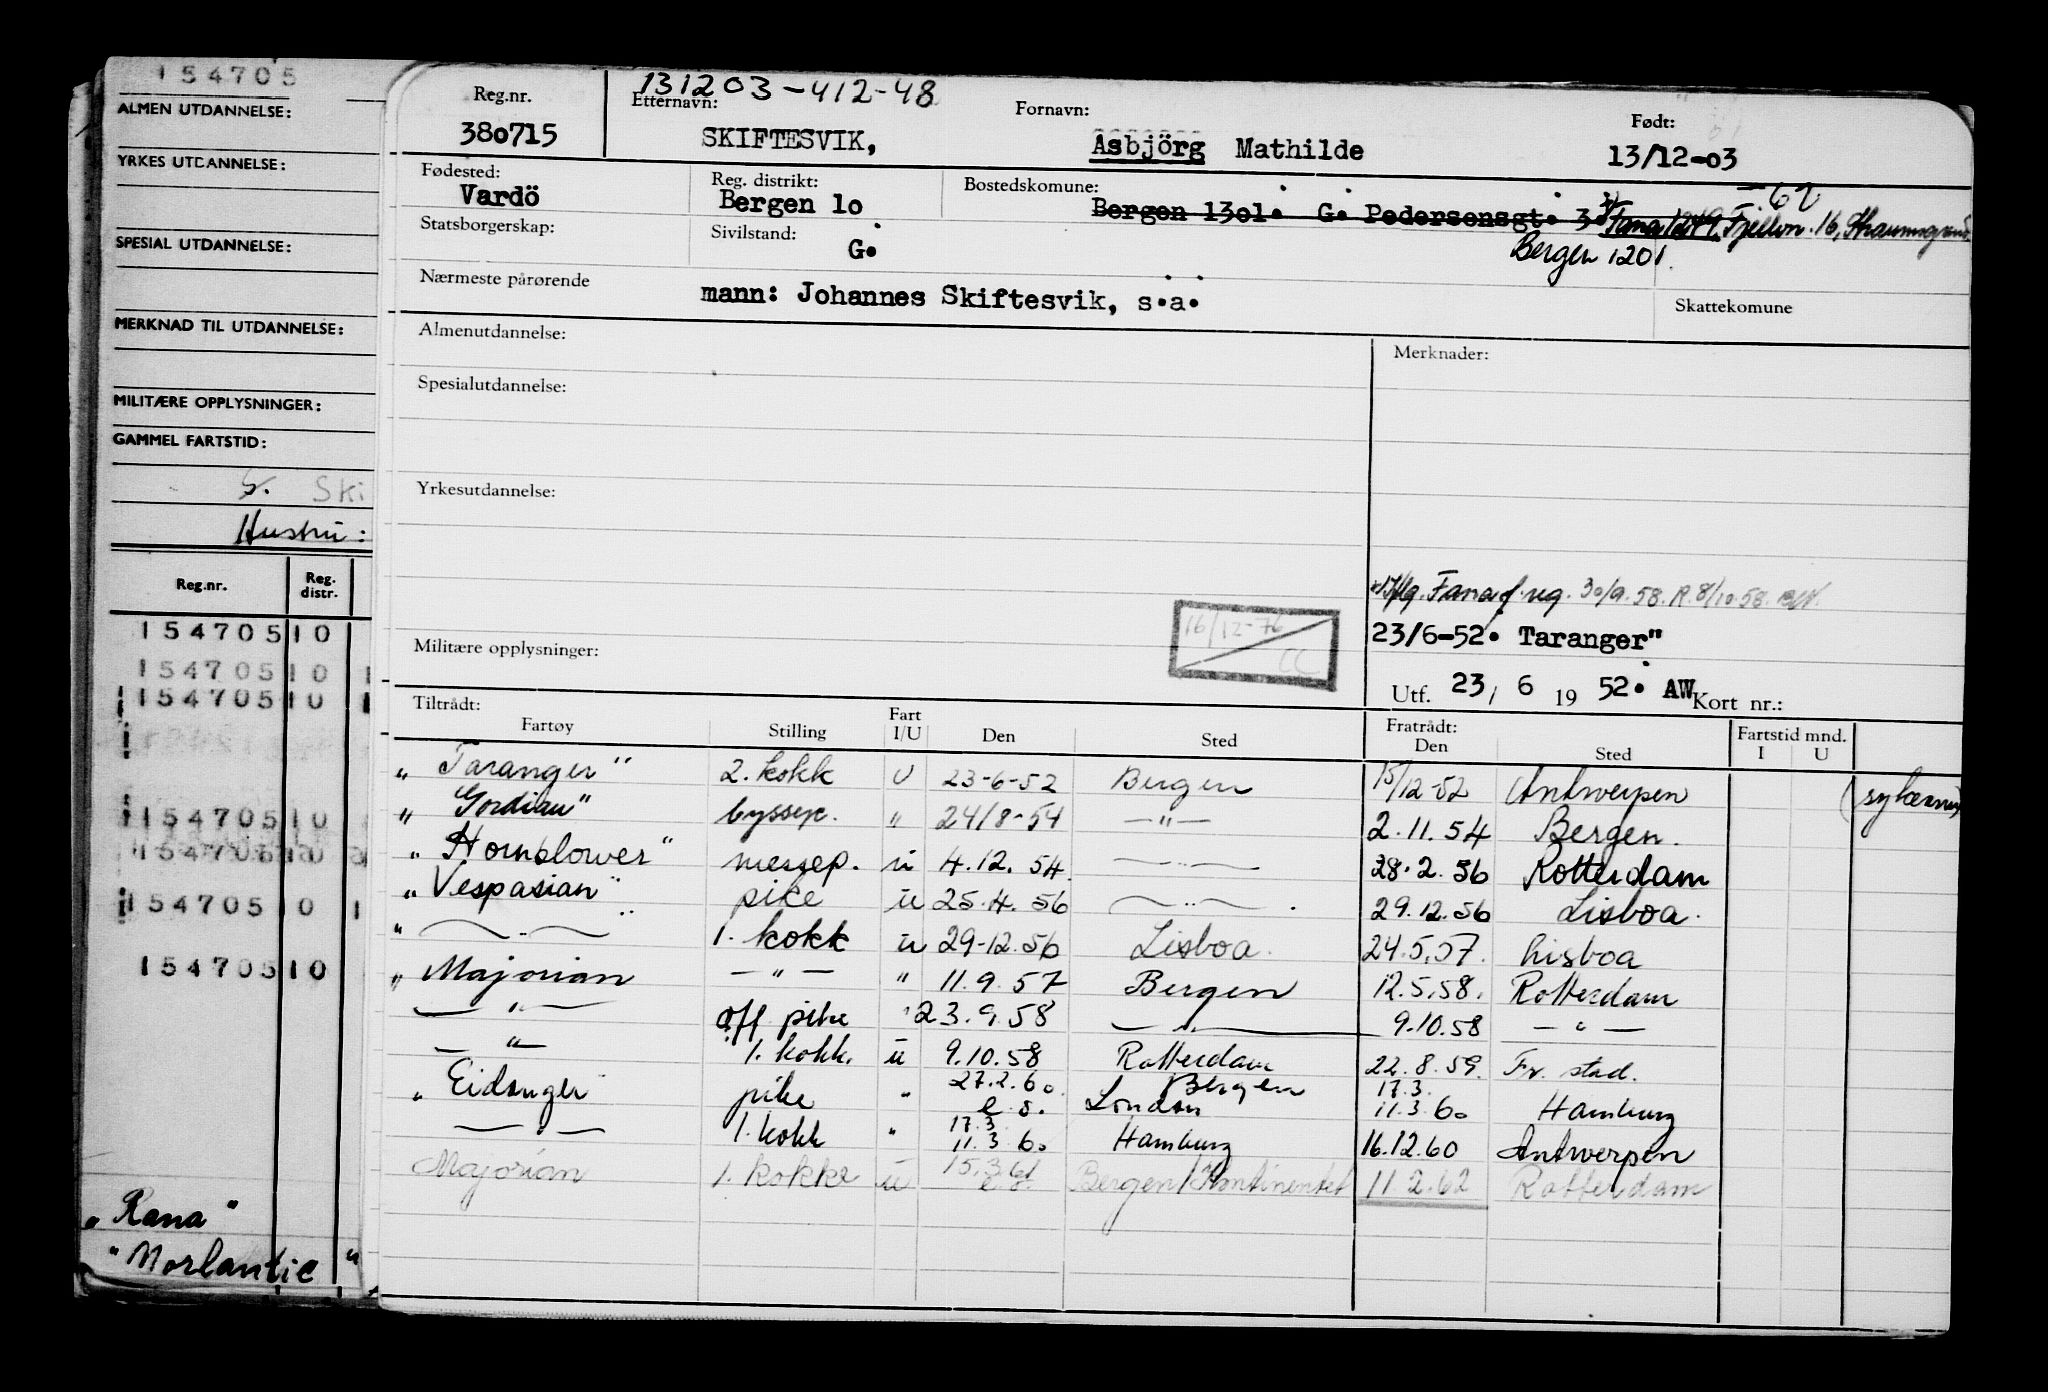 154705
ALMEN UTDANNELSE:
YRKES UTDANNELSE:
SPESIAL UTDANNELSE:
MERKNAD TIL UTDANNELSE:
MILITÆRE OPPLYSNINGER:
GAMMEL FARTSTID:
G. Ski
Hustru:
Reg.nr. Reg. distr.
154705 10
154705 10 1
154705 10
154705 10
154705 10
154705 10 1
154705 10
„Rana"
"Norlantic"
131203-412-48
Reg.nr. Etternavn: Fornavn: Født:
380715 SKIFTESVIK, Asbjörg Mathilde 13/12-03
Fødested: Reg. distrikt: Bostedskomune: -62
Vardö Bergen 10 Bergen 1301. G. Pedersensgt. 3 Fana 1249 Fjellvn. 16,
Bergen 1201.
Statsborgerskap: Sivilstand:
G.
Nærmeste pårørende mann: Johannes Skiftesvik, s.a. Skattekomune
Almenutdannelse: Merknader:
Spesialutdannelse:
Yrkesutdannelse:
Fana f. reg. 30/9.58. R. 8/10.58.
16/12-76 CC
23/6-52. Taranger"
Militære opplysninger:
Utf. 23/ 6 19 52. AW Kort nr.:
Tiltrådt: Fartøy Stilling Fart I/U Den Sted Fratrådt: Den Sted Fartstid mnd. I U
„Taranger" 2. kokk U 23-6-52 Bergen 15/12-52 Antwerpen (
„Gordian" byssep. " 24/8-54 —"— 2.11.54 Bergen.
„Hornblower" messep. u 4.12.54. —"— 28.2.56 Rotterdam
„Vespasian" pike u 25.4.56 —"— . 29.12.56 Lisboa.
„ —"— 1. kokk u 29-12.56 Lisboa. 24.5.57. Lisboa
„Majorian —"— " 11.9.57 Bergen 12.5.58. Rotterdam
—"— off pike " 23.9.58 —"— 9.10.58 —"—
—"— 1. kokk. u 9.10.58 Rotterdam 22.8.59. Fr. stad.
„Eidanger" pike " 27.2.60 e.o. Bergen London 17.3. 11.3.60 Hamburg
—"— 1. kokk " 17.3 11.3.60 Hamburg 16.12.60 Antwerpen
Majorian 1. kokke u 15.3.61 e.o. Bergen/Kontinentet 11.2.62 Rotterdam